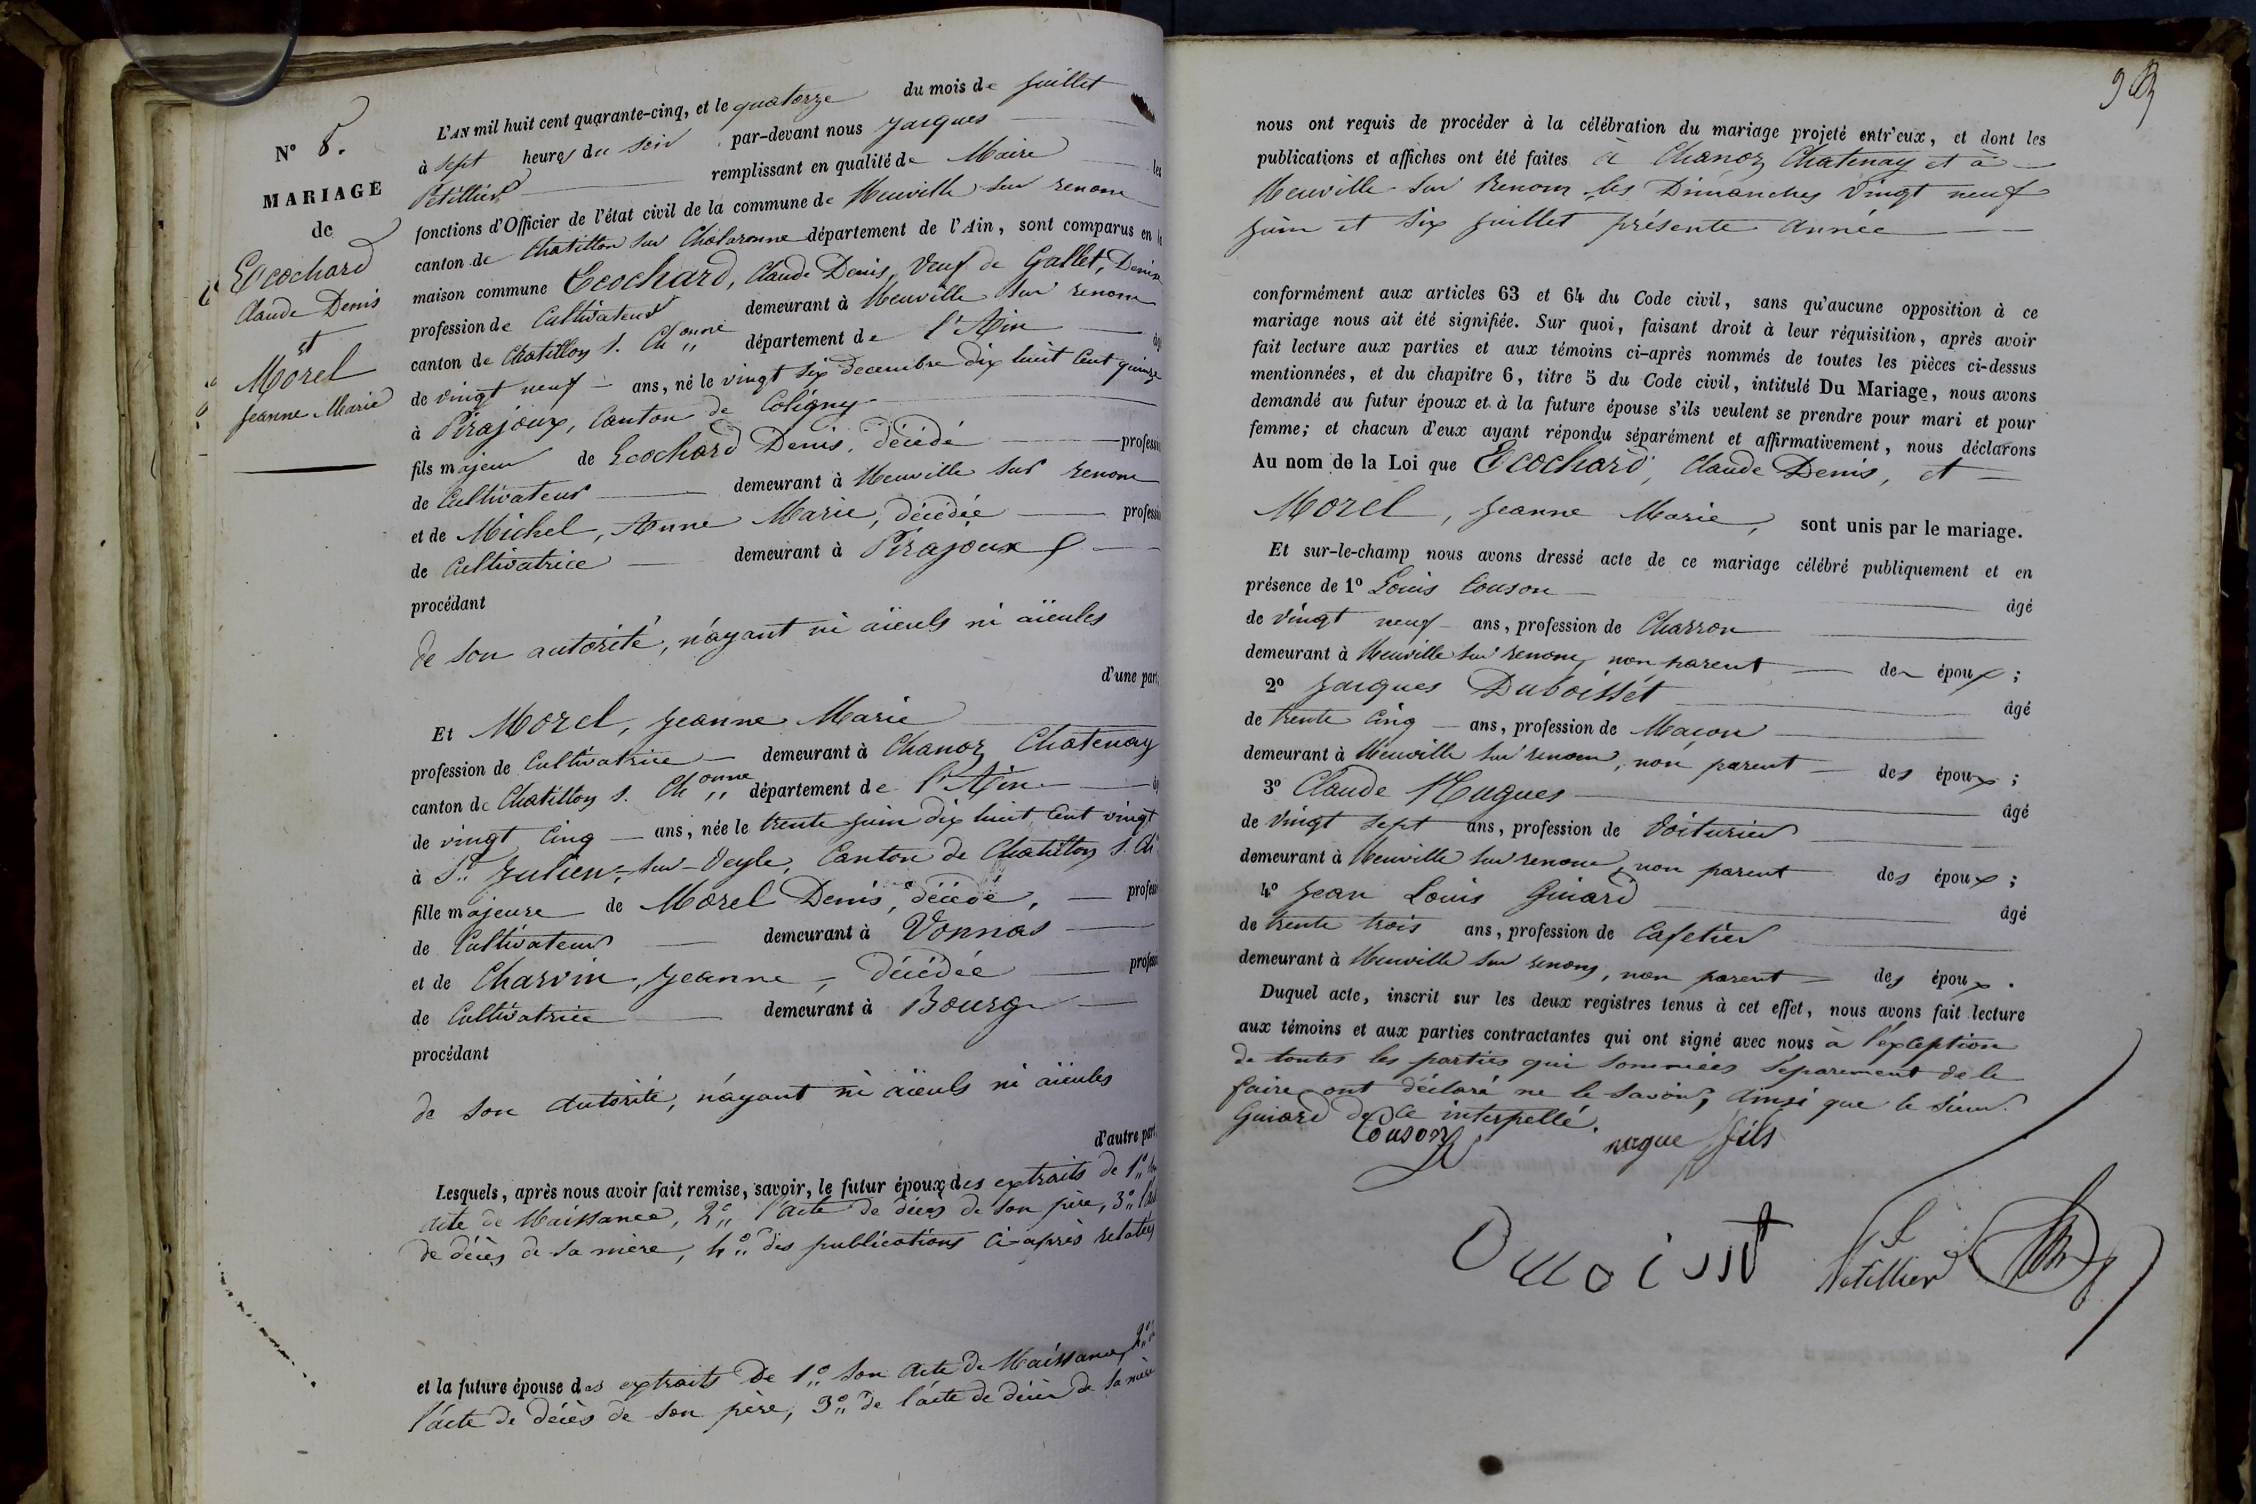 N° 8.
MARIAGE
de
Ecochard
Claude Denis
et
Morel
Jeanne Marie
L'AN mil huit cent quarante-cinq, et le quatorze du mois de Juillet
à sept heures du soir par-devant nous Jacques
Pétillier remplissant en qualité de Maire les
fonctions d'Officier de l'état civil de la commune de Neuville sur renom
canton de Chatillon sur Chalaronne département de l'Ain, sont comparus en la
maison commune Ecochard, Claude Denis, Veuf de Gallet, Denise
profession de Cultivateur demeurant à Neuville sur renom
canton de Chatillon s. Ch onne département de l'Ain âgé
de vingt neuf ans, né le vingt six decembre dix huit Cent quinze
à Pirajoux, Canton de Coligny
fils majeur de Ecochard Denis, décédé profession
de Cultivateur demeurant à Neuville sur renom
et de Michel, Anne Marie, décédée profession
de Cultivatrice demeurant à Pirajoux
procédant
de son autorité, n'ayant ni aïeuls ni aïeules
d'une part.
Et Morel, Jeanne Marie
profession de Cultivatrice demeurant à Chanoz Chatenay
canton de Chatillon s. Ch onne département de l'Ain
de vingt Cinq ans, née le trente juin dix huit Cent vingt
à St. Julien-sur-Veyle, Canton de Chatillon s. Ch
fille majeure de Morel Denis, décédé, profession
de Cultivateur demeurant à Vonnas
et de Charvin, Jeanne, décédée profession
de Cultivatrice demeurant à Bourg
procédant
de son autorité, n'ayant ni aïeuls ni aïeules
d'autre part.
Lesquels, après nous avoir fait remise, savoir, le futur époux des extraits de 1°
acte de Naissance, 2° l'acte de décès de son père, 3°
de décès de sa mère, 4° des publications ci-après relatées
et la future épouse des extraits de 1° son acte de Naissance, 2° de
l'acte de décès de son père, 3° de l'acte de décès de sa mère
93
nous ont requis de procéder à la célébration du mariage projeté entr'eux, et dont les
publications et affiches ont été faites à Chanoz Chatenay et à
Neuville sur Renom les Dimanches Vingt neuf
juin et six juillet présente Année
conformément aux articles 63 et 64 du Code civil, sans qu'aucune opposition à ce
mariage nous ait été signifiée. Sur quoi, faisant droit à leur réquisition, après avoir
fait lecture aux parties et aux témoins ci-après nommés de toutes les pièces ci-dessus
mentionnées, et du chapitre 6, titre 5 du Code civil, intitulé Du Mariage, nous avons
demandé au futur époux et à la future épouse s'ils veulent se prendre pour mari et pour
femme; et chacun d'eux ayant répondu séparément et affirmativement, nous déclarons
Au nom de la Loi que Ecochard, Claude Denis, et
Morel, Jeanne Marie, sont unis par le mariage.
Et sur-le-champ nous avons dressé acte de ce mariage célébré publiquement et en
présence de 1° Louis Couson âgé
de vingt neuf ans, profession de Charron
demeurant à Neuville sur renom, non parent des époux;
2° Jacques Duboisset âgé
de trente Cinq ans, profession de Maçon
demeurant à Neuville sur renom, non parent des époux;
3° Claude Hugues âgé
de vingt sept ans, profession de Voiturier
demeurant à Neuville sur renom, non parent des époux;
4° Jean Louis Guiard âgé
de trente trois ans, profession de Cafetier
demeurant à Neuville sur renom, non parent des époux.
Duquel acte, inscrit sur les deux registres tenus à cet effet, nous avons fait lecture
aux témoins et aux parties contractantes qui ont signé avec nous à l'exception
de toutes les parties qui sommées séparement de le
faire ont déclaré ne le savoir, ainsi que le sieur
Guiard de ce interpellé.
Couson nugue fils
Pétillier